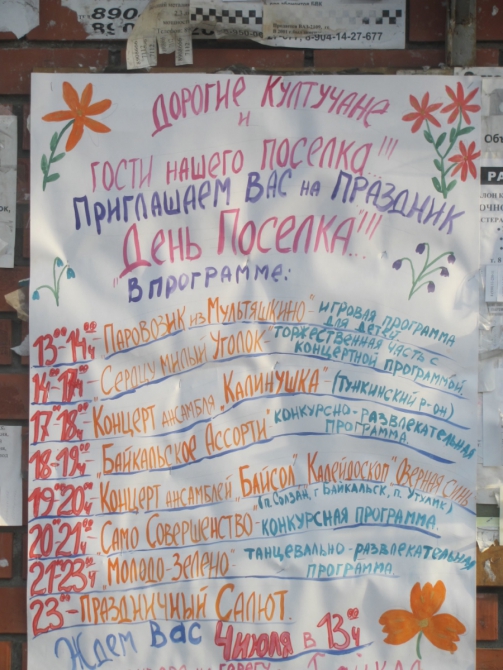 8-904-14-27-677
ДОРОГИЕ КУЛТУЧАНЕ
И
ГОСТИ НАШЕГО ПОСЕЛКА!!!
ПРИГЛАШАЕМ ВАС НА ПРАЗДНИК
"ДЕНЬ ПОСЕЛКА"!!!
В ПРОГРАММЕ:
13⁰⁰-14⁰⁰ч - "ПАРОВОЗИК ИЗ МУЛЬТЯШКИНО" - ИГРОВАЯ ПРОГРАММА ДЛЯ ДЕТЕЙ.
14⁰⁰- "СЕРДЦУ МИЛЫЙ УГОЛОК" ТОРЖЕСТВЕННАЯ ЧАСТЬ С КОНЦЕРТНОЙ ПРОГРАММОЙ.
17⁰⁰-18⁰⁰ч - КОНЦЕРТ АНСАМБЛЯ "КАЛИНУШКА" (ТУНКИНСКИЙ Р-ОН)
18-19⁰⁰ч - "БАЙКАЛЬСКОЕ АССОРТИ" КОНКУРСНО-РАЗВЛЕКАТЕЛЬНАЯ ПРОГРАММА.
19⁰⁰-20⁰⁰ч - КОНЦЕРТ АНСАМБЛЕЙ "БАЙСОЛ" "КАЛЕЙДОСКОП" "ОЗЕРНАЯ СИНЬ"
(П. СОЛЗАН, Г. БАЙКАЛЬСК, П. УТУЛИК)
20⁰⁰-21⁰⁰ч - "САМО СОВЕРШЕНСТВО" - КОНКУРСНАЯ ПРОГРАММА.
21⁰⁰-23⁰⁰ч - "МОЛОДО-ЗЕЛЕНО" - ТАНЦЕВАЛЬНО-РАЗВЛЕКАТЕЛЬНАЯ ПРОГРАММА.
23⁰⁰ - ПРАЗДНИЧНЫЙ САЛЮТ.
ЖДЕМ ВАС 4 ИЮЛЯ В 13⁰⁰ч